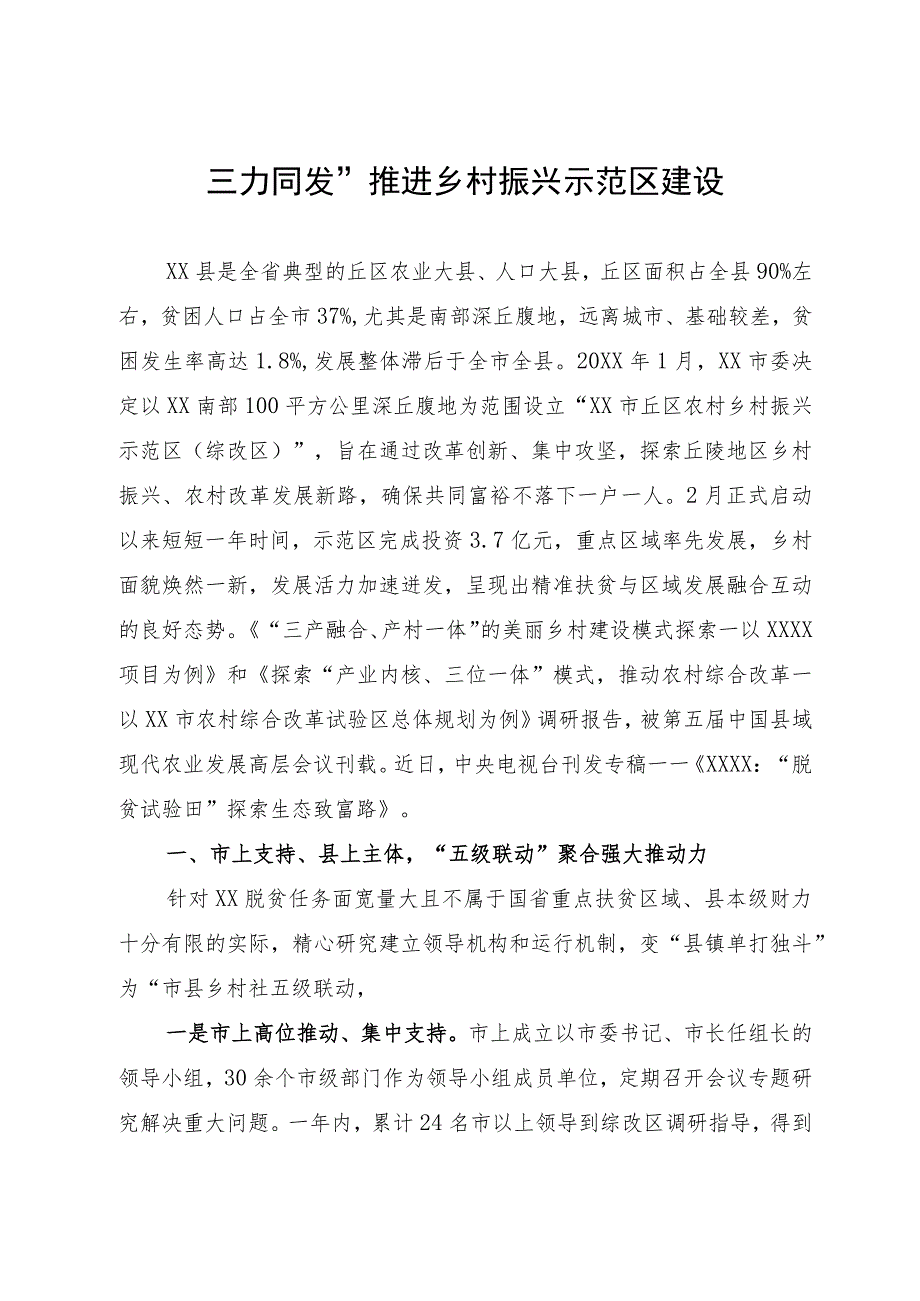 三力同发”推进乡村振兴示范区建设
XX 县是全省典型的丘区农业大县、人口大县，丘区面积占全县 90%左
右，贫困人口占全市 37%,尤其是南部深丘腹地，远离城市、基础较差，贫
困发生率高达 1.8%,发展整体滞后于全市全县。20XX 年 1 月，XX 市委决
定以 XX 南部 100 平方公里深丘腹地为范围设立“XX 市丘区农村乡村振兴
示范区（综改区）”，旨在通过改革创新、集中攻坚，探索丘陵地区乡村
振兴、农村改革发展新路，确保共同富裕不落下一户一人。2 月正式启动
以来短短一年时间，示范区完成投资 3.7 亿元，重点区域率先发展，乡村
面貌焕然一新，发展活力加速迸发，呈现出精准扶贫与区域发展融合互动
的良好态势。《“三产融合、产村一体”的美丽乡村建设模式探索一以 XXXX
项目为例》和《探索“产业内核、三位一体”模式，推动农村综合改革一
以 XX 市农村综合改革试验区总体规划为例》调研报告，被第五届中国县域
现代农业发展高层会议刊载。近日，中央电视台刊发专稿一一《XXXX：“脱
贫试验田”探索生态致富路》。
一、市上支持、县上主体，“五级联动”聚合强大推动力
针对 XX 脱贫任务面宽量大且不属于国省重点扶贫区域、县本级财力
十分有限的实际，精心研究建立领导机构和运行机制，变“县镇单打独斗”
为“市县乡村社五级联动，
一是市上高位推动、集中支持。市上成立以市委书记、市长任组长的
领导小组，30 余个市级部门作为领导小组成员单位，定期召开会议专题研
究解决重大问题。一年内，累计 24 名市以上领导到综改区调研指导，得到